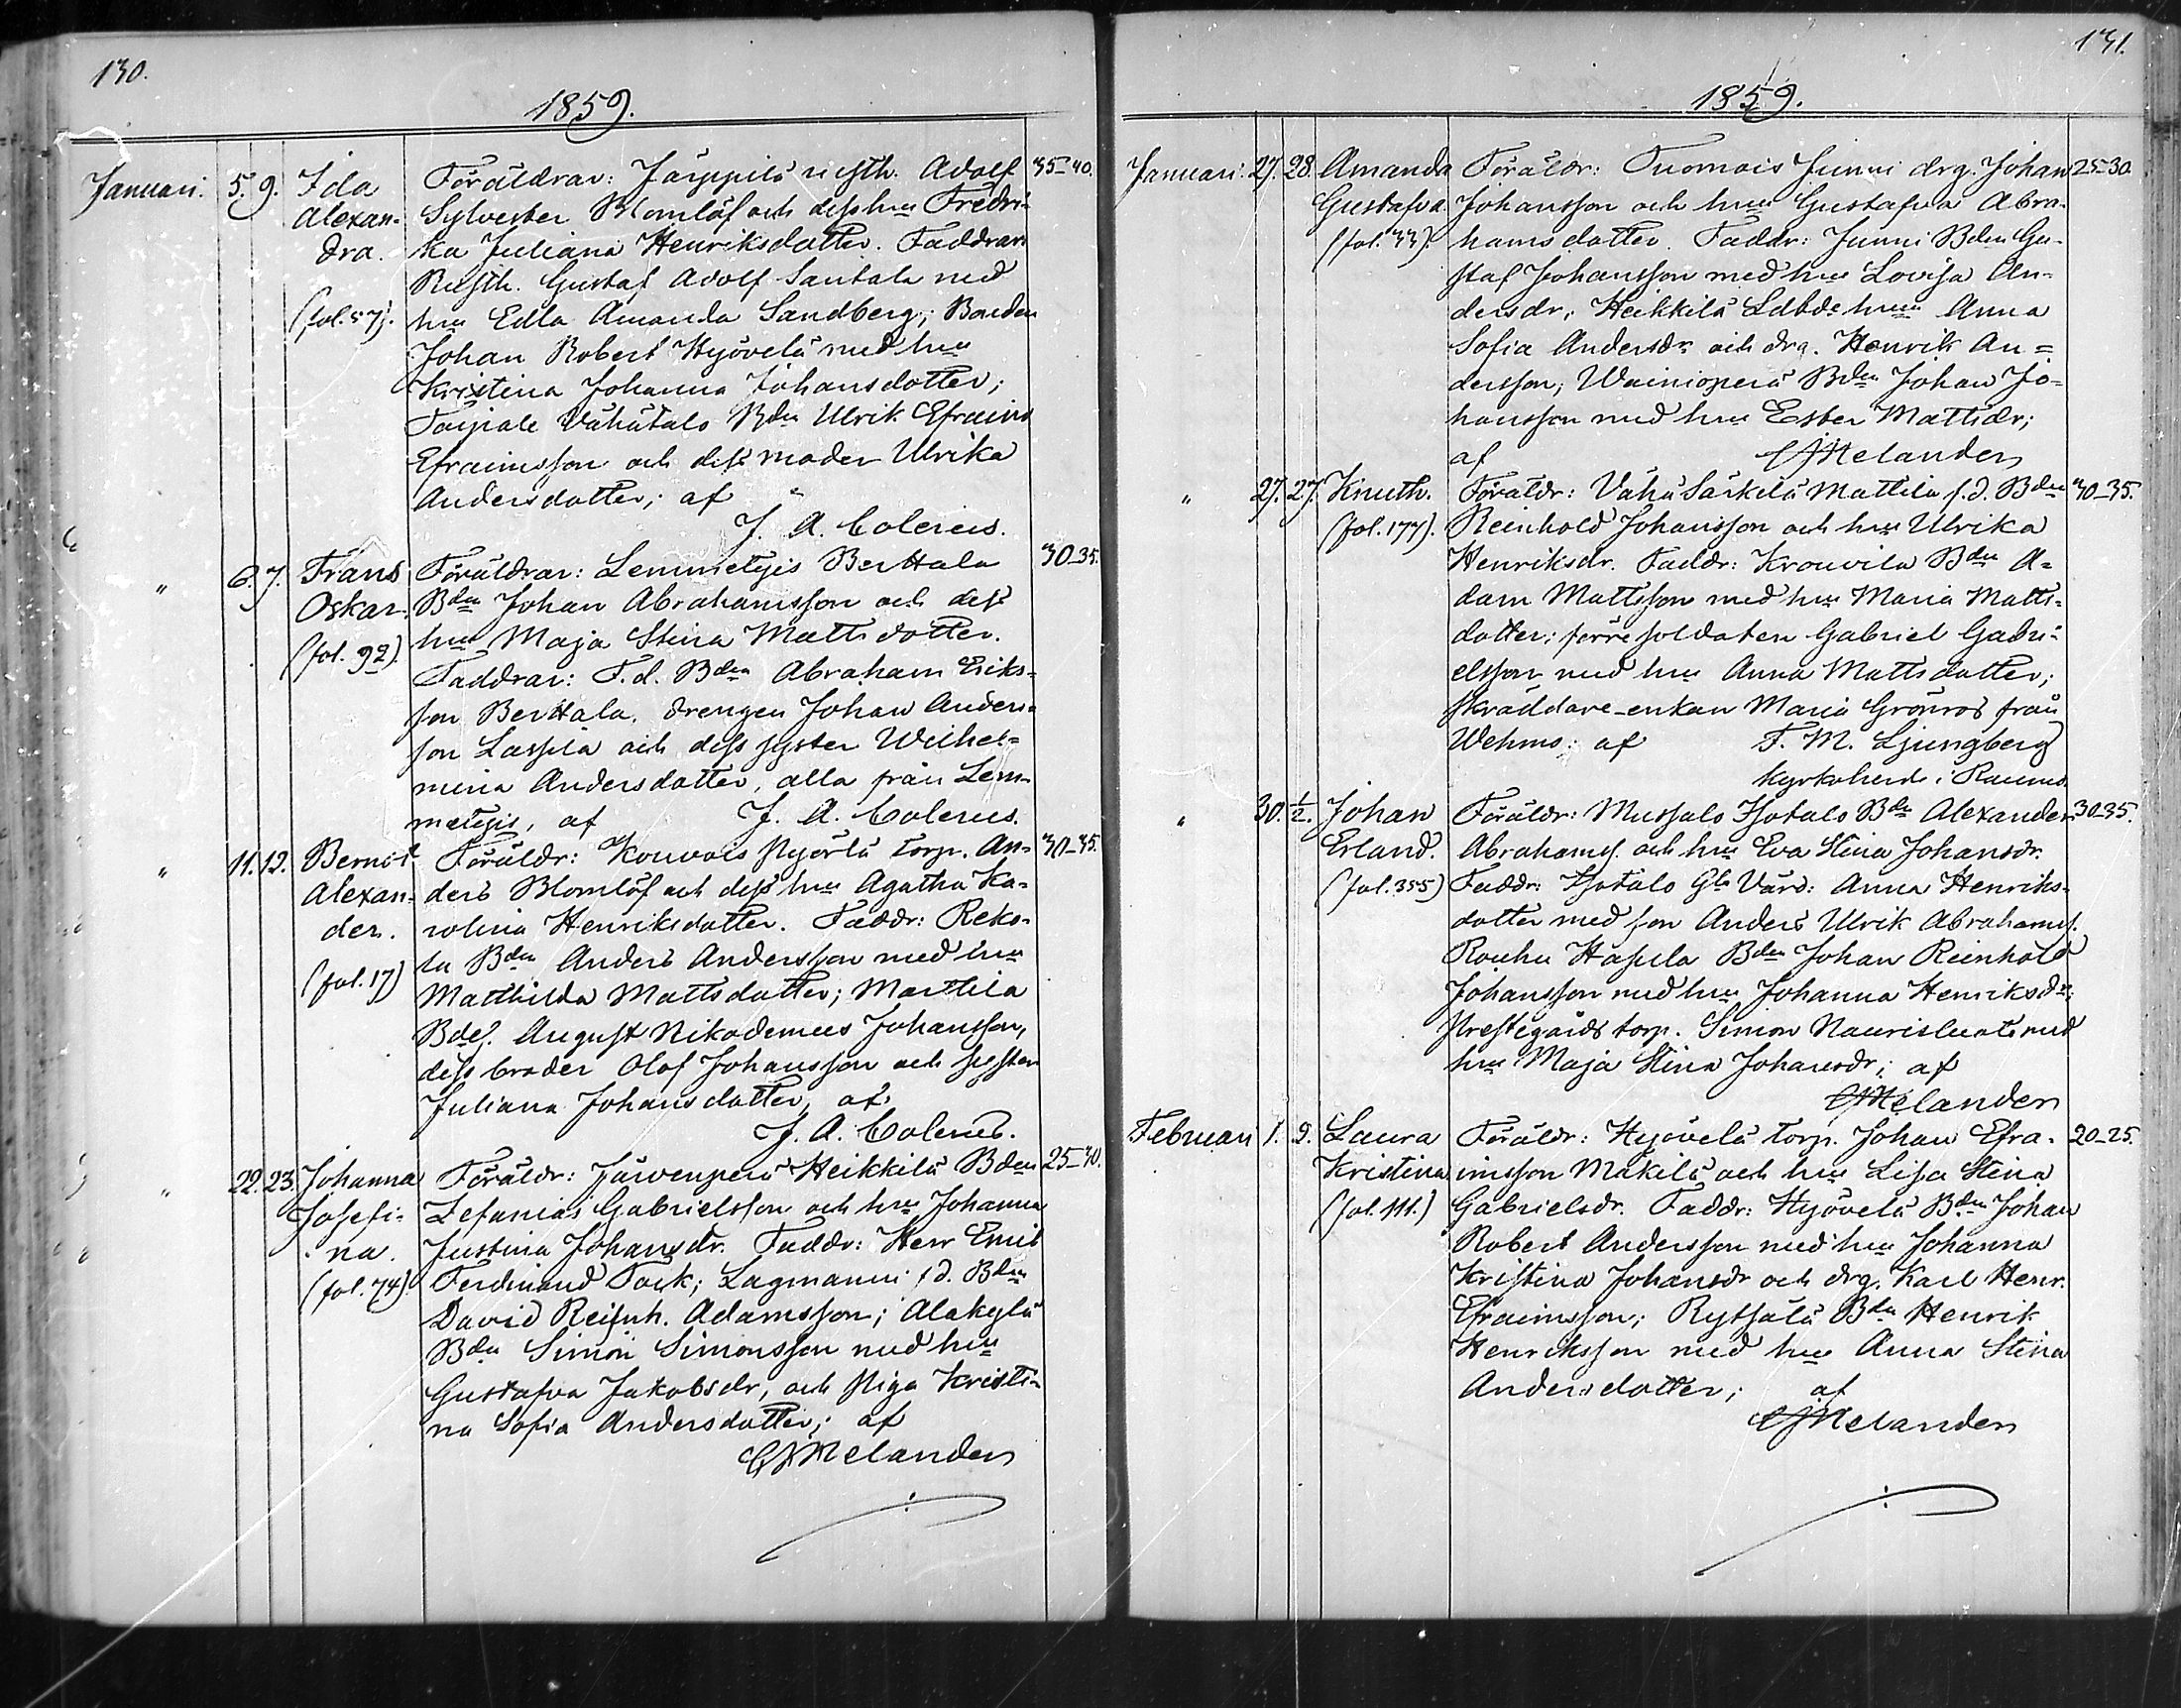 130.
1859.
Januari. 5. 9. Ida Föräldrar: Järppilä rusth. Adolf 35-40.
Alexan- Sylvester Blomlöf och dess hu Fredri-
dra. ka Juliana Henriksdotter. Faddrar:
Rusth. Gustaf Adolf Santala med
(fol. 57). hu Edla Amanda Sandberg; Bonden
Johan Robert Hyövelä med hu
Kristina Johanna Johansdotter;
Taipale Vähätalo Bdn Ulrik Efraims
Efraimsson och dess moder Ulrika
Andersdotter; af
J. A. Colerus.
" 6. 7. Frans Föräldrar: Lemmetyis Berttala 30-35.
Oskar. Bdn Johan Abrahamsson och dess
(fol. 92). hu Maja Stina Mattsdotter.
Faddrar: F.d. Bdn Abraham Eriks-
son Berttala, drengen Johan Anders-
son Lassila och dess syster Wilhel-
mina Andersdotter, alla från Lem-
metyis, af J. A. Colerus.
" 11. 12. Bernot Föräldr: Kouvois Pyörlä torp. An- 30-35.
Alexan- ders Blomlöf och dess hu Agatha Ka-
der. rolina Henriksdotter. Faddr: Reko-
(fol. 17) la Bdn Anders Andersson med hu
Matthilda Mattsdotter; Marttila
Bdes. August Nikodemus Johansson,
dess broder Olof Johansson och syster
Juliana Johansdotter, af
J. A. Colerus.
" 22. 23. Johanna Föräldr: Järvenperä Heikkilä Bden 25-30.
Josefi- Zefanias Gabrielsson och hu Johanna
na. Justina Johansdr. Faddr: Herr Emil
(fol. 74). Ferdinand Tack; Lagmanni f.d. Bdn
David Reinh. Adamsson; Alakylä
Bdn Simon Simonsson med hu
Gustafva Jakobsdr, och Piga Kristi-
na Sofia Andersdotter; af
CJMelander
131.
1859.
Januari. 27. 28. Amanda Föräldr: Tuomois Junni drg. Johan 25-30.
Gustafva. Johansson och hu Gustafva Abra-
(fol. 33). hamsdotter. Faddr: Junni Bden Gu-
staf Johansson med hu Lovisa An-
dersdr, Heikkilä Ldbde hu Anna
Sofia Andersdr och drg. Henrik An=
dersson, Wainionperä Bdn Johan Jo-
hansson med hu Ester Mattsdr;
af CJMelander
" 27. 27. Knuth. Föräldr: Vähä Särkilä Mattila f.d. Bdn 30-35.
(fol. 177). Reinhold Johansson och hu Ulrika
Henriksdr. Faddr: Krouvila Bdn A-
dam Mattsson med hu Maria Matts-
dotter; förre soldaten Gabriel Gabri-
elsson med hu Anna Mattsdotter;
skräddare-enkan Maria Grönros från
Wehmo: af F. M. Ljungberg
kyrkoherde i Raumo.
" 30. 1/2. Johan Föräldr: Mussalo Isotalo Bdn Alexander 30-35.
Erland. Abrahams. och hu Eva Stina Johansdr.
(fol. 355) Faddr: Isotalo Gla Värd: Anna Henriks-
dotter med son Anders Ulrik Abrahams.
Rouhu Hapila Bdn Johan Reinhold
Johansson med hu Johanna Henriksdr;
Prestegårds torp. Simon Naurisluoto med
hu Maja Stina Johansdr; af
CJMelander
Februari 1. 9. Laura Föräldr: Hyövelä torp. Johan Efra- 20-25.
Kristina imsson Mäkilä och hu Lisa Stina
(fol. 111.) Gabrielsdr. Faddr: Hyövelä Bdn Johan
Robert Andersson med hu Johanna
Kristina Johansdr och drg. Karl Henr.
Efraimsson; Rytsälä Bdn Henrik
Henriksson med hu Anna Stina
Andersdotter; af
CJMelander